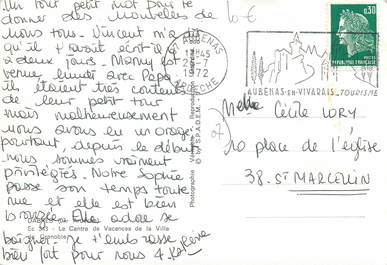 Un tout petit mot pour te
donner des nouvelles de
nous tous. Vincent m'a dit
qu'il t'avait écrit il
a deux jours. Mamy est
venue lundi avec Papa
ils étaient très contents
de leur petit tour
mais malheureusement
nous avons eu un orage
pourtant, depuis le début
nous sommes vraiment
privilégiés. Notre Sophie
passe son temps toute
nue et elle est bien
bronzée. Elle adore se
baigner. Je t'embrasse
bien fort pour nous 4
10 €
07 AUBENAS
45
-7
1972
ARDECHE
0,30
REPUBLIQUE FRANCAISE
AUBENAS-EN-VIVARAIS-TOURISME
Melle Cécile
place de l'église
38. St
Photographie
© by S.P.A.D.E.M.
Le Centre de Vacances de la Ville
de Grenoble